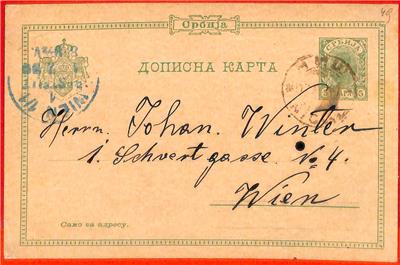 49
Србија
СРБИЈА
ДОПИСНА КАРТА
5 5
WIEN
Herrn. Johan. Winter
1. Schwertgasse. No 4.
Wien
Само за адресу.